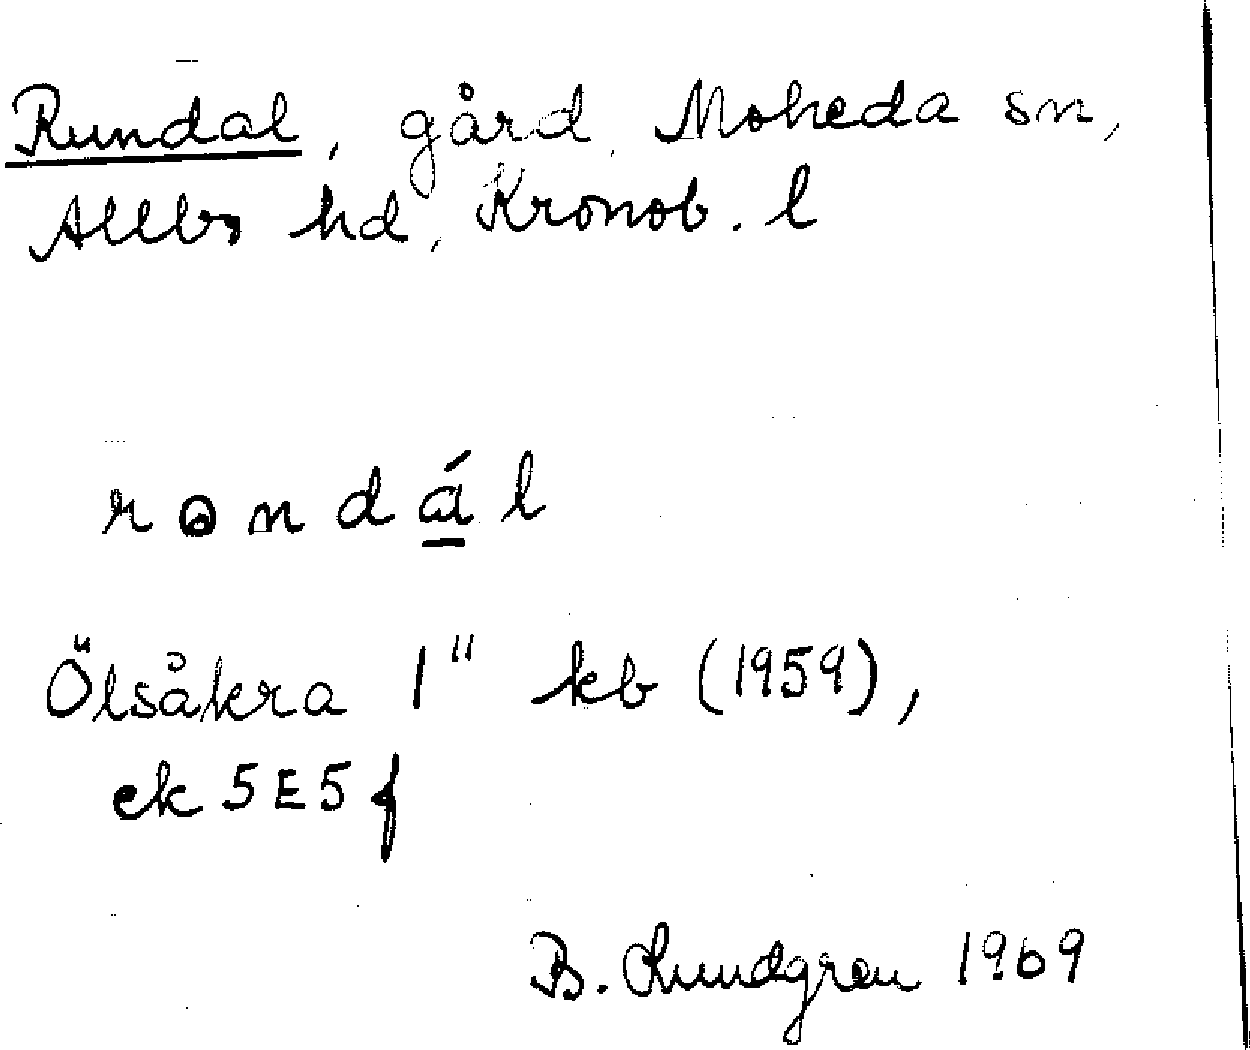 Rundal, gård, Moheda sn,
Allbo hd, Kronob. l
rondál
Ölsåkra 1" kb (1959),
ek 5E5f
B. Lundgren 1969